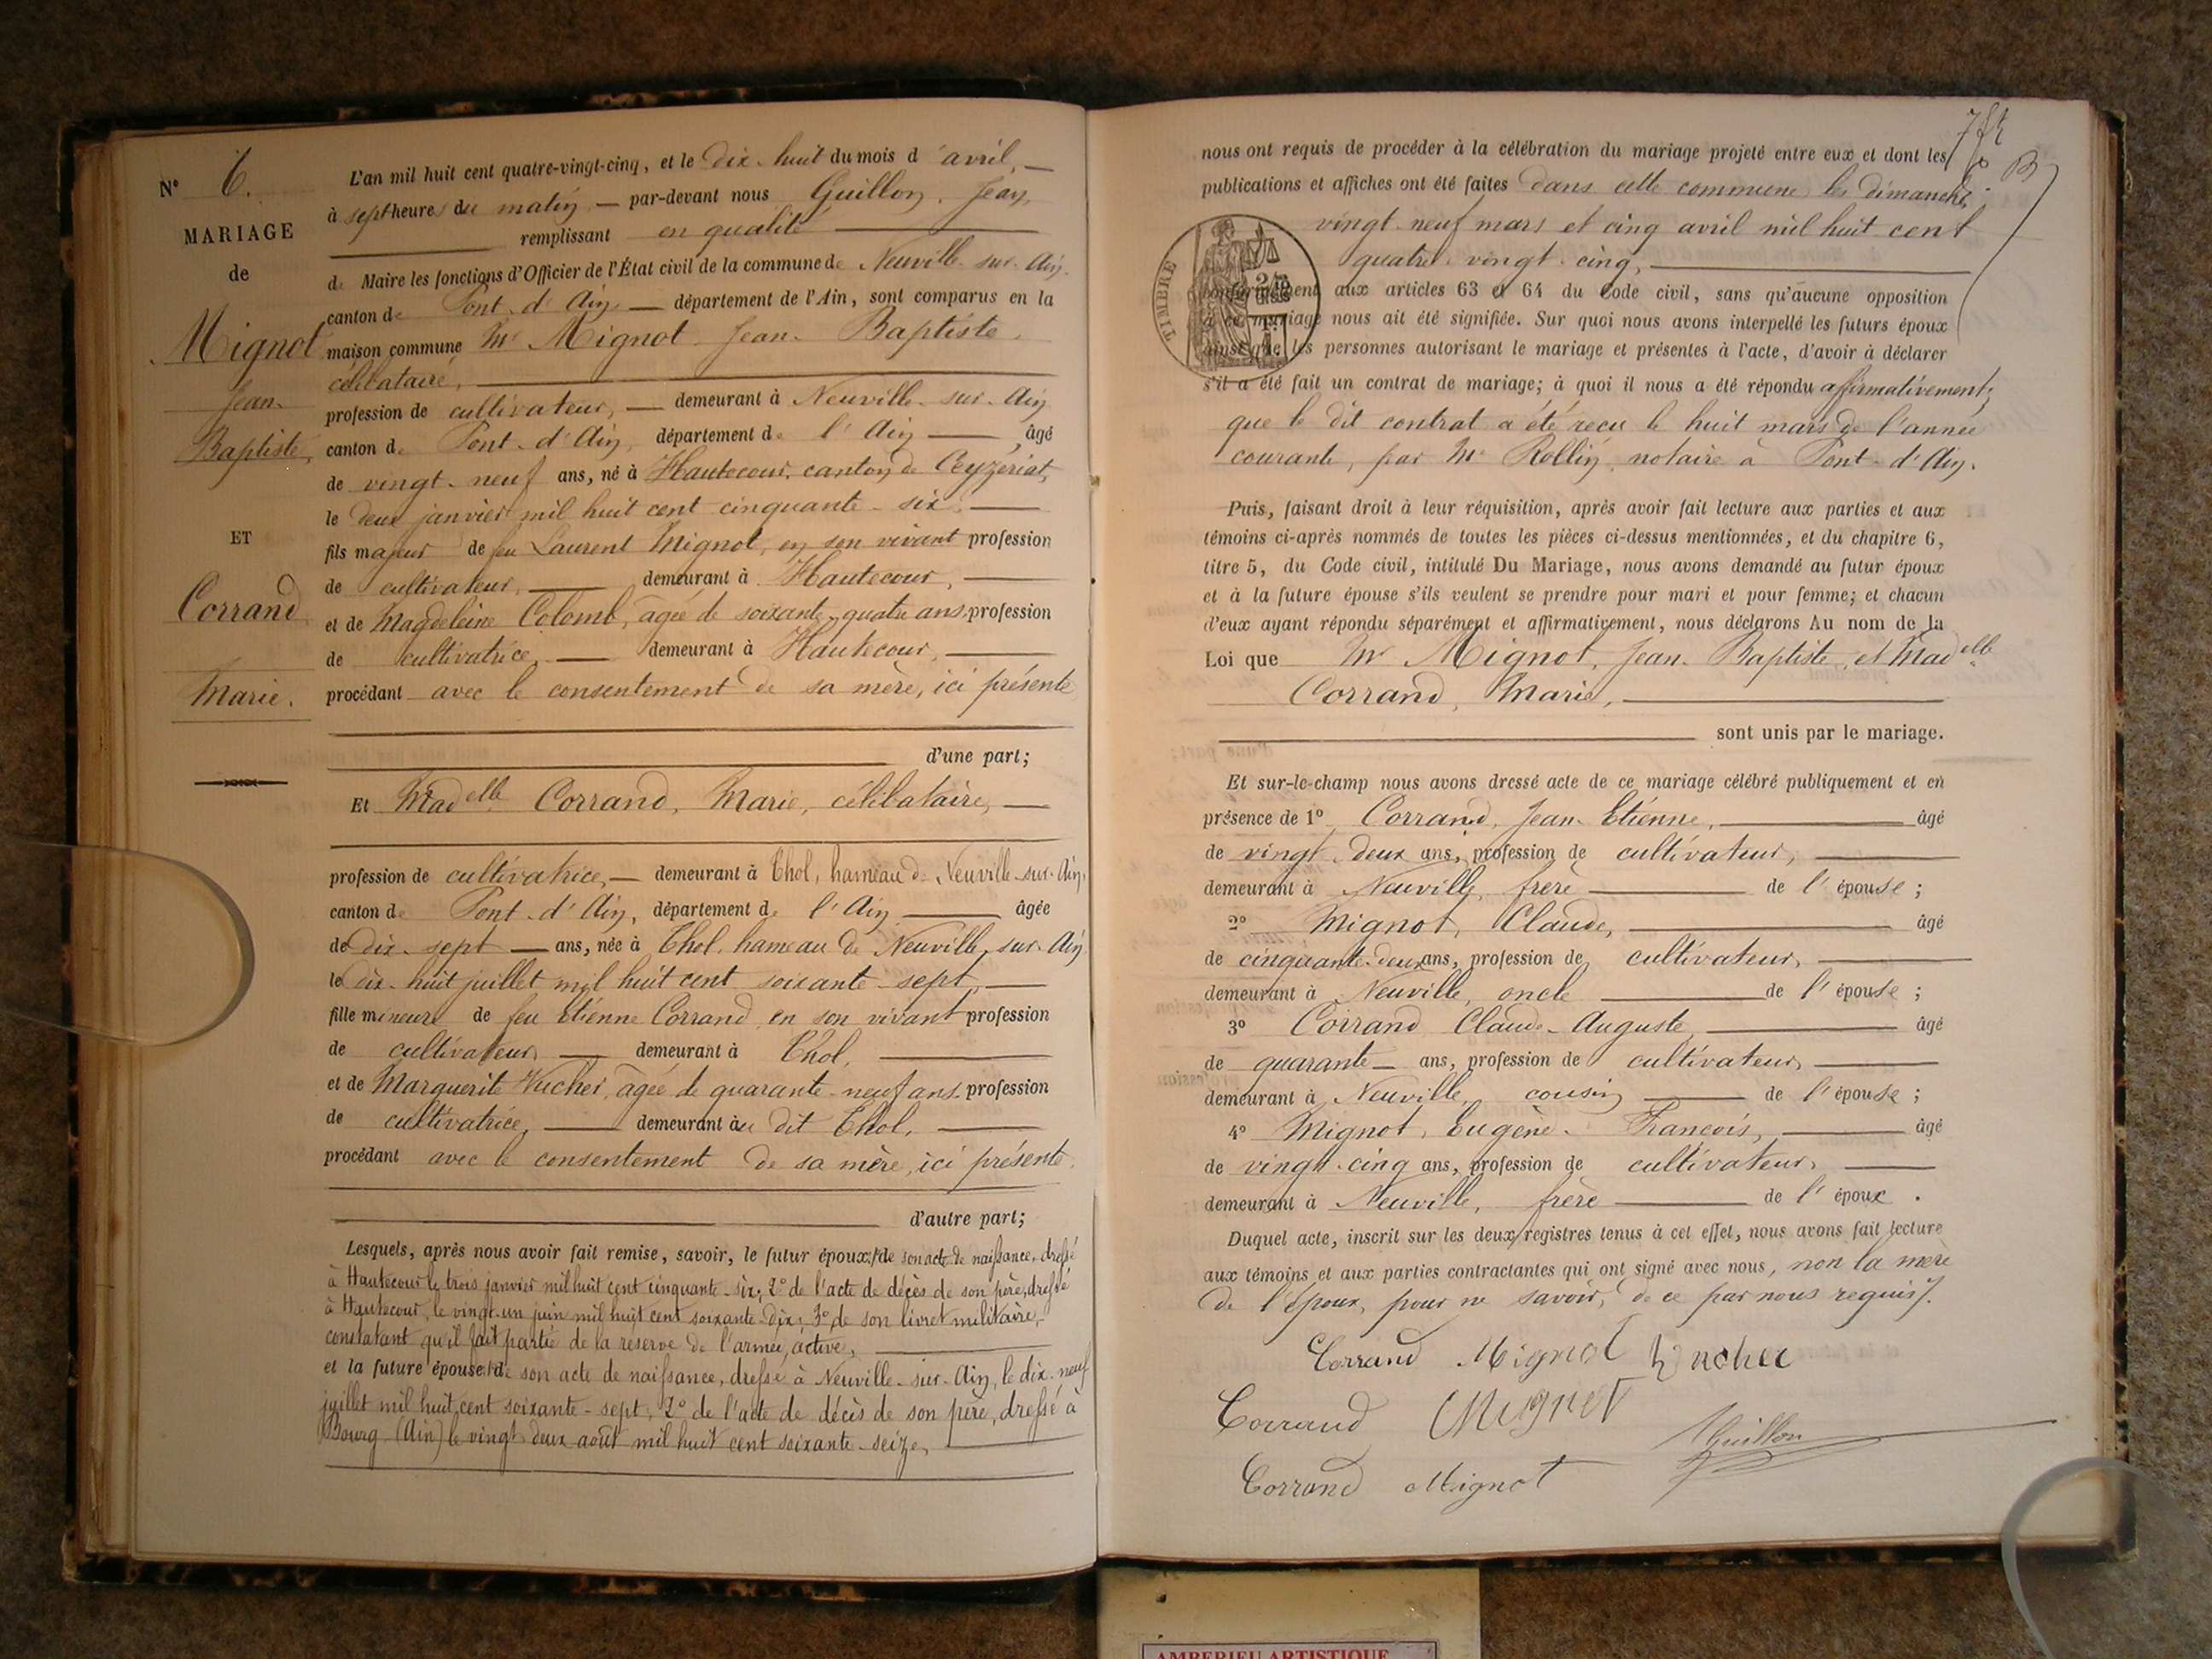 N° 6.
MARIAGE
de
Mignot
Jean-
Baptiste,
ET
Corrand
Marie.
L'an mil huit cent quatre-vingt-cinq, et le dix-huit du mois d'avril, —
à sept heures du matin — par-devant nous Guillon, Jean,
remplissant en qualité
de Maire les fonctions d'Officier de l'État civil de la commune de Neuville-sur-Ain,
canton de Pont-d'Ain, — département de l'Ain, sont comparus en la
maison commune Mr Mignot Jean-Baptiste,
célibataire,
profession de cultivateur, — demeurant à Neuville-sur-Ain
canton de Pont-d'Ain, département de l'Ain — âgé
de vingt-neuf ans, né à Hautecour, canton de Ceyzériat,
le deux janvier mil huit cent cinquante-six,
fils majeur de feu Laurent Mignot, en son vivant profession
de cultivateur, — demeurant à Hautecour,
et de Magdeleine Colomb, âgée de soixante-quatre ans, profession
de cultivatrice, — demeurant à Hautecour,
procédant avec le consentement de sa mère, ici présente
d'une part;
Et Madelle Corrand, Marie, célibataire, —
profession de cultivatrice, — demeurant à Thol, hameau de Neuville-sur-Ain,
canton de Pont-d'Ain, département de l'Ain — âgée
de dix-sept — ans, née à Thol, hameau de Neuville-sur-Ain
le dix-huit juillet mil huit cent soixante-sept, —
fille mineure de feu Etienne Corrand, en son vivant profession
de cultivateur, — demeurant à Thol,
et de Marguerite Vucher, âgée de quarante-neuf ans, profession
de cultivatrice, — demeurant au dit Thol,
procédant avec le consentement de sa mère, ici présente,
d'autre part;
Lesquels, après nous avoir fait remise, savoir, le futur époux: 1° de son acte de naissance, dressé
à Hautecour le trois janvier mil huit cent cinquante-six; 2° de l'acte de décès de son père, dressé
à Hautecour, le vingt-un juin mil huit cent soixante-dix; 3° de son livret militaire,
constatant qu'il fait partie de la réserve de l'armée active,
et la future épouse: 1° de son acte de naissance, dressé à Neuville-sur-Ain, le dix-neuf
juillet mil huit cent soixante-sept; 2° de l'acte de décès de son père, dressé à
Bourg (Ain) le vingt-deux août mil huit cent soixante-seize,
nous ont requis de procéder à la célébration du mariage projeté entre eux et dont les
publications et affiches ont été faites dans cette commune les dimanches
vingt-neuf mars et cinq avril mil huit cent
quatre-vingt-cinq,
TIMBRE
conformément aux articles 63 et 64 du Code civil, sans qu'aucune opposition
à ce mariage nous ait été signifiée. Sur quoi nous avons interpellé les futurs époux
ainsi que les personnes autorisant le mariage et présentes à l'acte, d'avoir à déclarer
s'il a été fait un contrat de mariage; à quoi il nous a été répondu affirmativement,
que le dit contrat a été reçu le huit mars de l'année
courante, par Me Rollin, notaire à Pont-d'Ain.
Puis, faisant droit à leur réquisition, après avoir fait lecture aux parties et aux
témoins ci-après nommés de toutes les pièces ci-dessus mentionnées, et du chapitre 6,
titre 5, du Code civil, intitulé Du Mariage, nous avons demandé au futur époux
et à la future épouse s'ils veulent se prendre pour mari et pour femme; et chacun
d'eux ayant répondu séparément et affirmativement, nous déclarons Au nom de la
Loi que Mr Mignot, Jean-Baptiste, et Madelle
Corrand, Marie,
sont unis par le mariage.
Et sur-le-champ nous avons dressé acte de ce mariage célébré publiquement et en
présence de 1° Corrand, Jean-Etienne, — âgé
de vingt-deux ans, profession de cultivateur,
demeurant à Neuville, frère — de l'épouse;
2° Mignot, Claude, — âgé
de cinquante-deux ans, profession de cultivateur,
demeurant à Neuville, oncle — de l'épouse;
3° Corrand Claude-Auguste — âgé
de quarante — ans, profession de cultivateur,
demeurant à Neuville, cousin — de l'épouse;
4° Mignot, Eugène-François, — âgé
de vingt-cinq ans, profession de cultivateur,
demeurant à Neuville, frère — de l'époux.
Duquel acte, inscrit sur les deux registres tenus à cet effet, nous avons fait lecture
aux témoins et aux parties contractantes qui ont signé avec nous, non la mère
de l'époux, pour ne savoir, de ce par nous requis.
Corrand Mignot Vucher
Corrand Mignot
Guillon
Corrand Mignot
AMBERIEU ARTISTIQUE